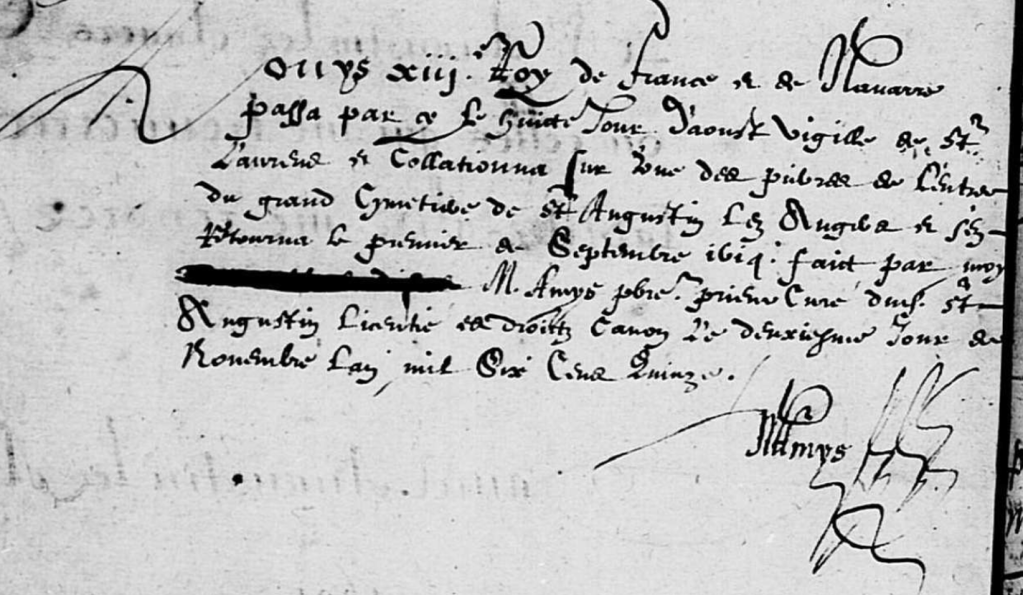 Louys xiij.e Roy de France et de Navarre
passa par cy le huicte Jour d'aoust vigille de St
Laurens et Collationna sur Vne des pierres de l'entree
du grand Cymetiere de St Augustin Lez Angers et s'en
Retourna le premier de Septembre 1614. faict par moy
M. Amys pbre. prieur Curé dud. St
Augustin Licentié es droitz Canon Le deuxiesme Jour de
Novembre Lan mil Six Cens Quinze.
MAmys